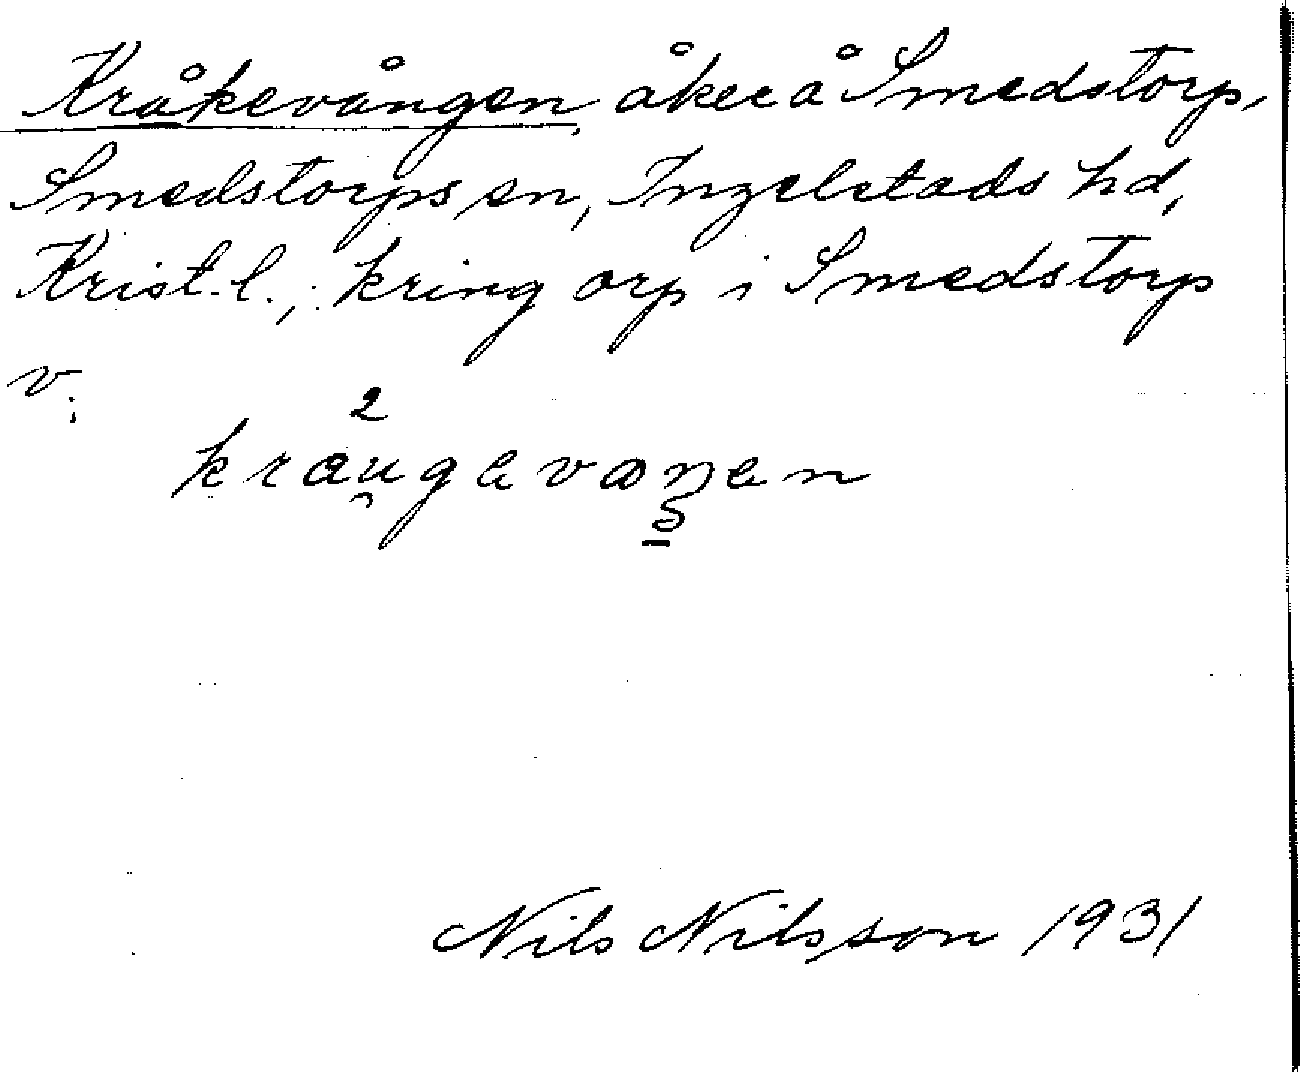 Kråkevången, åker å Smedstorp,
Smedstorps sn, Ingelstads hd,
Krist.l., kring orp i Smedstorp
v.
Nils Nilsson 1931